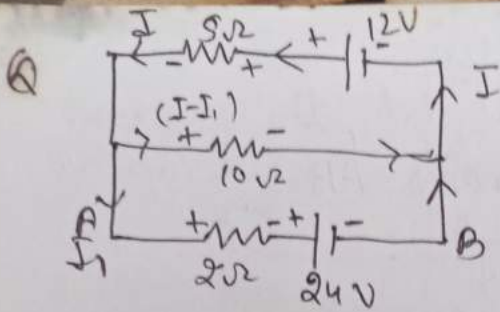 I 5Ω + 12V -
Q - +
I
(I-I₁)
+ -
10Ω
A + - + - B
I₁ 2Ω 24V